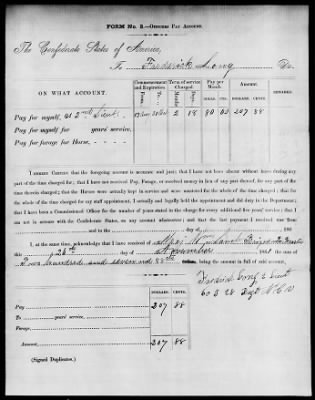 FORM No. 3.—Officers Pay Account.
The Confederate States of America,
To Frederick Long Dr.
ON WHAT ACCOUNT.
Commencement and Expiration
Term of service Charged
Pay per Month.
Amount.
REMARKS.
Months Days
DOLLS. CTS.
DOLLARS. CENTS.
Pay for myself, as 2nd Lieut. 2 18 80 00 207 88
Pay for myself for years' service,
Pay for forage for Horse,
I HEREBY CERTIFY that the foregoing account is accurate and just; that I have not been absent without leave during any
part of the time charged for; that I have not received Pay, Forage, or received money in lieu of any part thereof, for any part of the
time therein charged; that the Horses were actually kept in service and were mustered for the whole of the time charged; that for
the whole of the time charged for my staff appointment, I actually and legally held the appointment and did the duty in the Department; that
I have been a Commissioned Officer for the number of years stated in the charge for every additional five years' service; that I am
not in arrears with the Confederate States, on any account whatsoever; and that the last payment I received was from
and to the day of 186
I, at the same time, acknowledge that I have received of Maj.
this 26th day of November 186
Two hundred and seven and 88 dollars, being the amount, in full of said account,
Frederick Long 2 Lieut
Co 28 Regt N.C.
DOLLARS. CENTS.
Pay 207 88
Forage
Amount 207 88
(Signed Duplicates.)